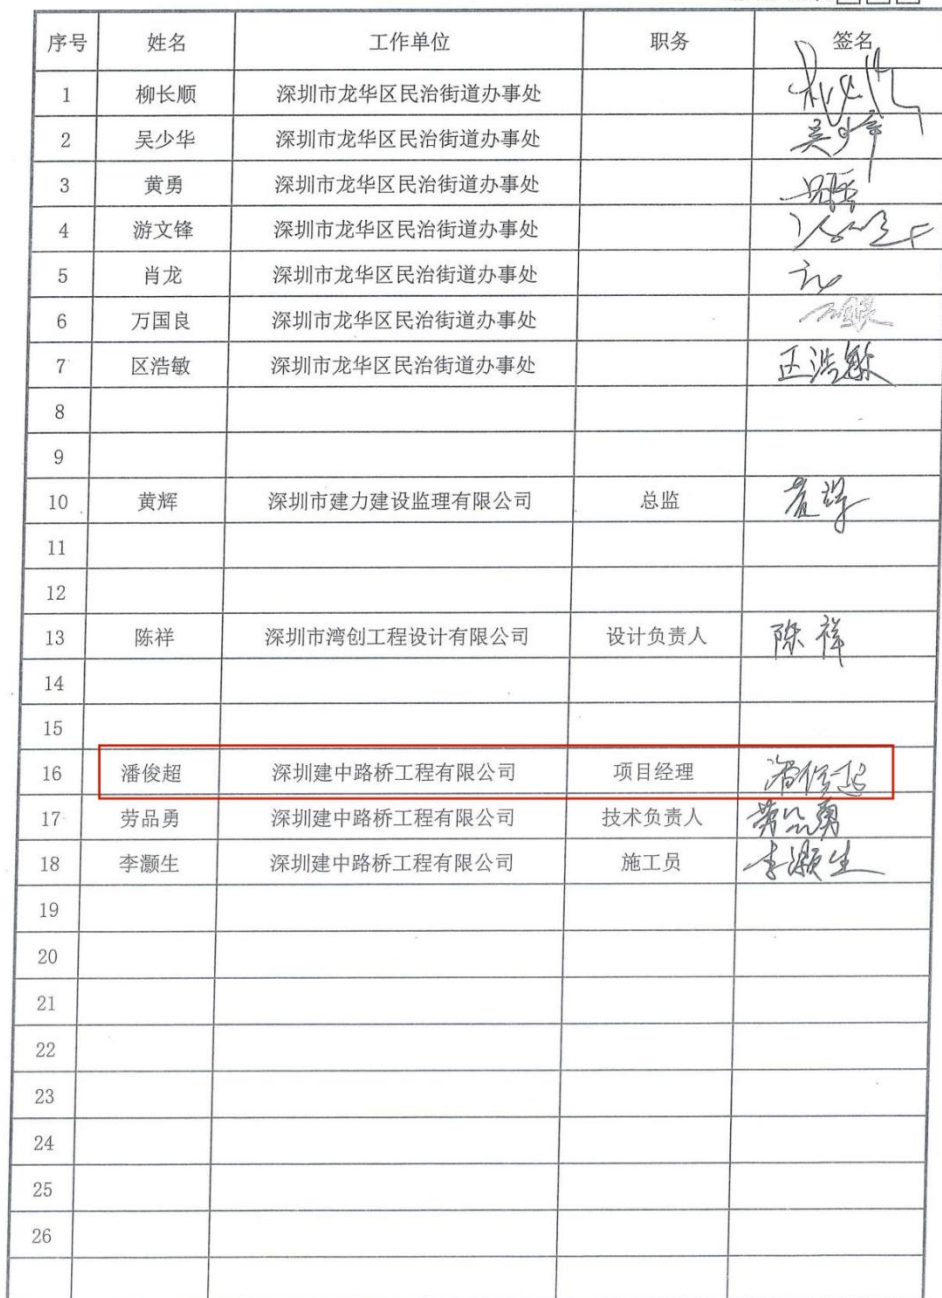 序号 姓名 工作单位 职务 签名
1 柳长顺 深圳市龙华区民治街道办事处
2 吴少华 深圳市龙华区民治街道办事处 吴少华
3 黄勇 深圳市龙华区民治街道办事处
4 游文锋 深圳市龙华区民治街道办事处
5 肖龙 深圳市龙华区民治街道办事处
6 万国良 深圳市龙华区民治街道办事处
7 区浩敏 深圳市龙华区民治街道办事处 区浩敏
8
9
10 黄辉 深圳市建力建设监理有限公司 总监 黄辉
11
12
13 陈祥 深圳市湾创工程设计有限公司 设计负责人 陈祥
14
15
16 潘俊超 深圳建中路桥工程有限公司 项目经理 潘俊超
17 劳品勇 深圳建中路桥工程有限公司 技术负责人 劳品勇
18 李灏生 深圳建中路桥工程有限公司 施工员 李灏生
19
20
21
22
23
24
25
26